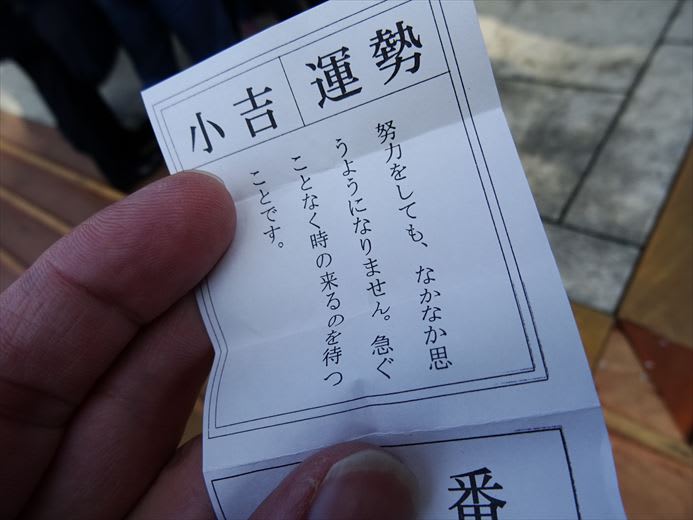 運勢
小吉
努力をしても、なかなか思
うようになりません。急ぐ
ことなく時の来るのを待つ
ことです。
番